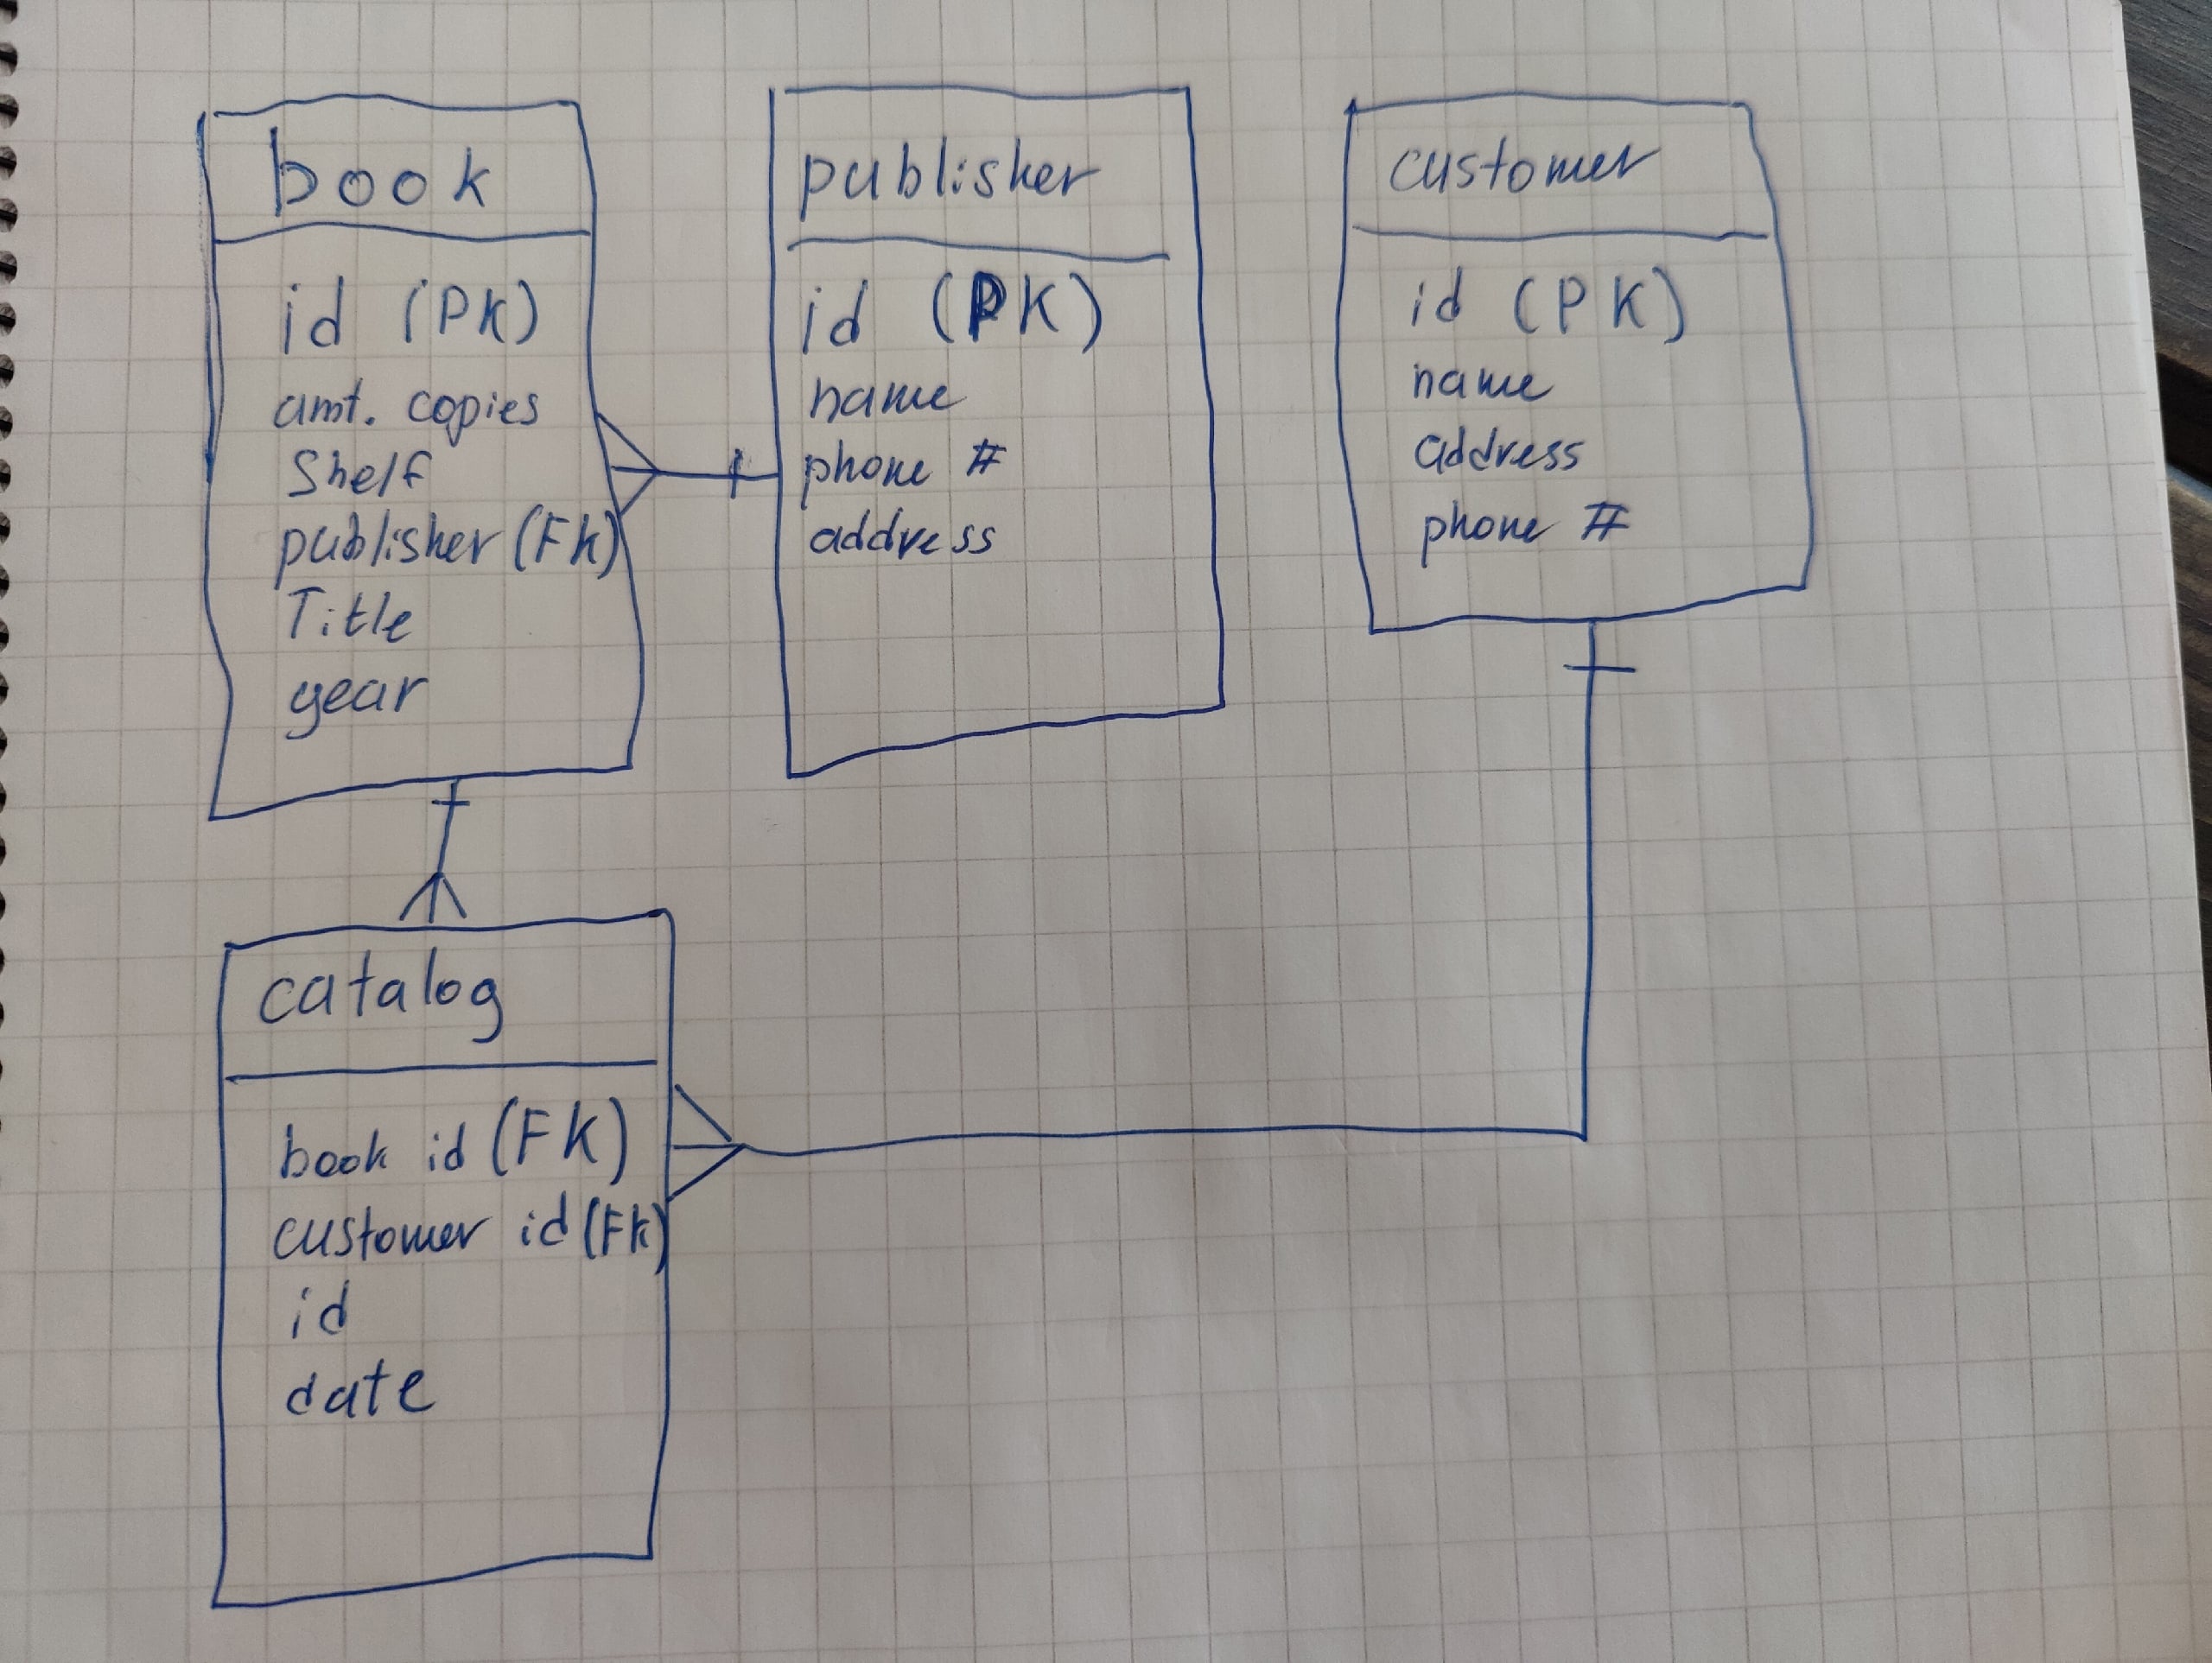 book
id (PK)
amt. copies
Shelf
publisher (FK)
Title
year
publisher
id (PK)
name
phone #
address
customer
id (PK)
name
address
phone #
catalog
book id (FK)
customer id (FK)
id
date